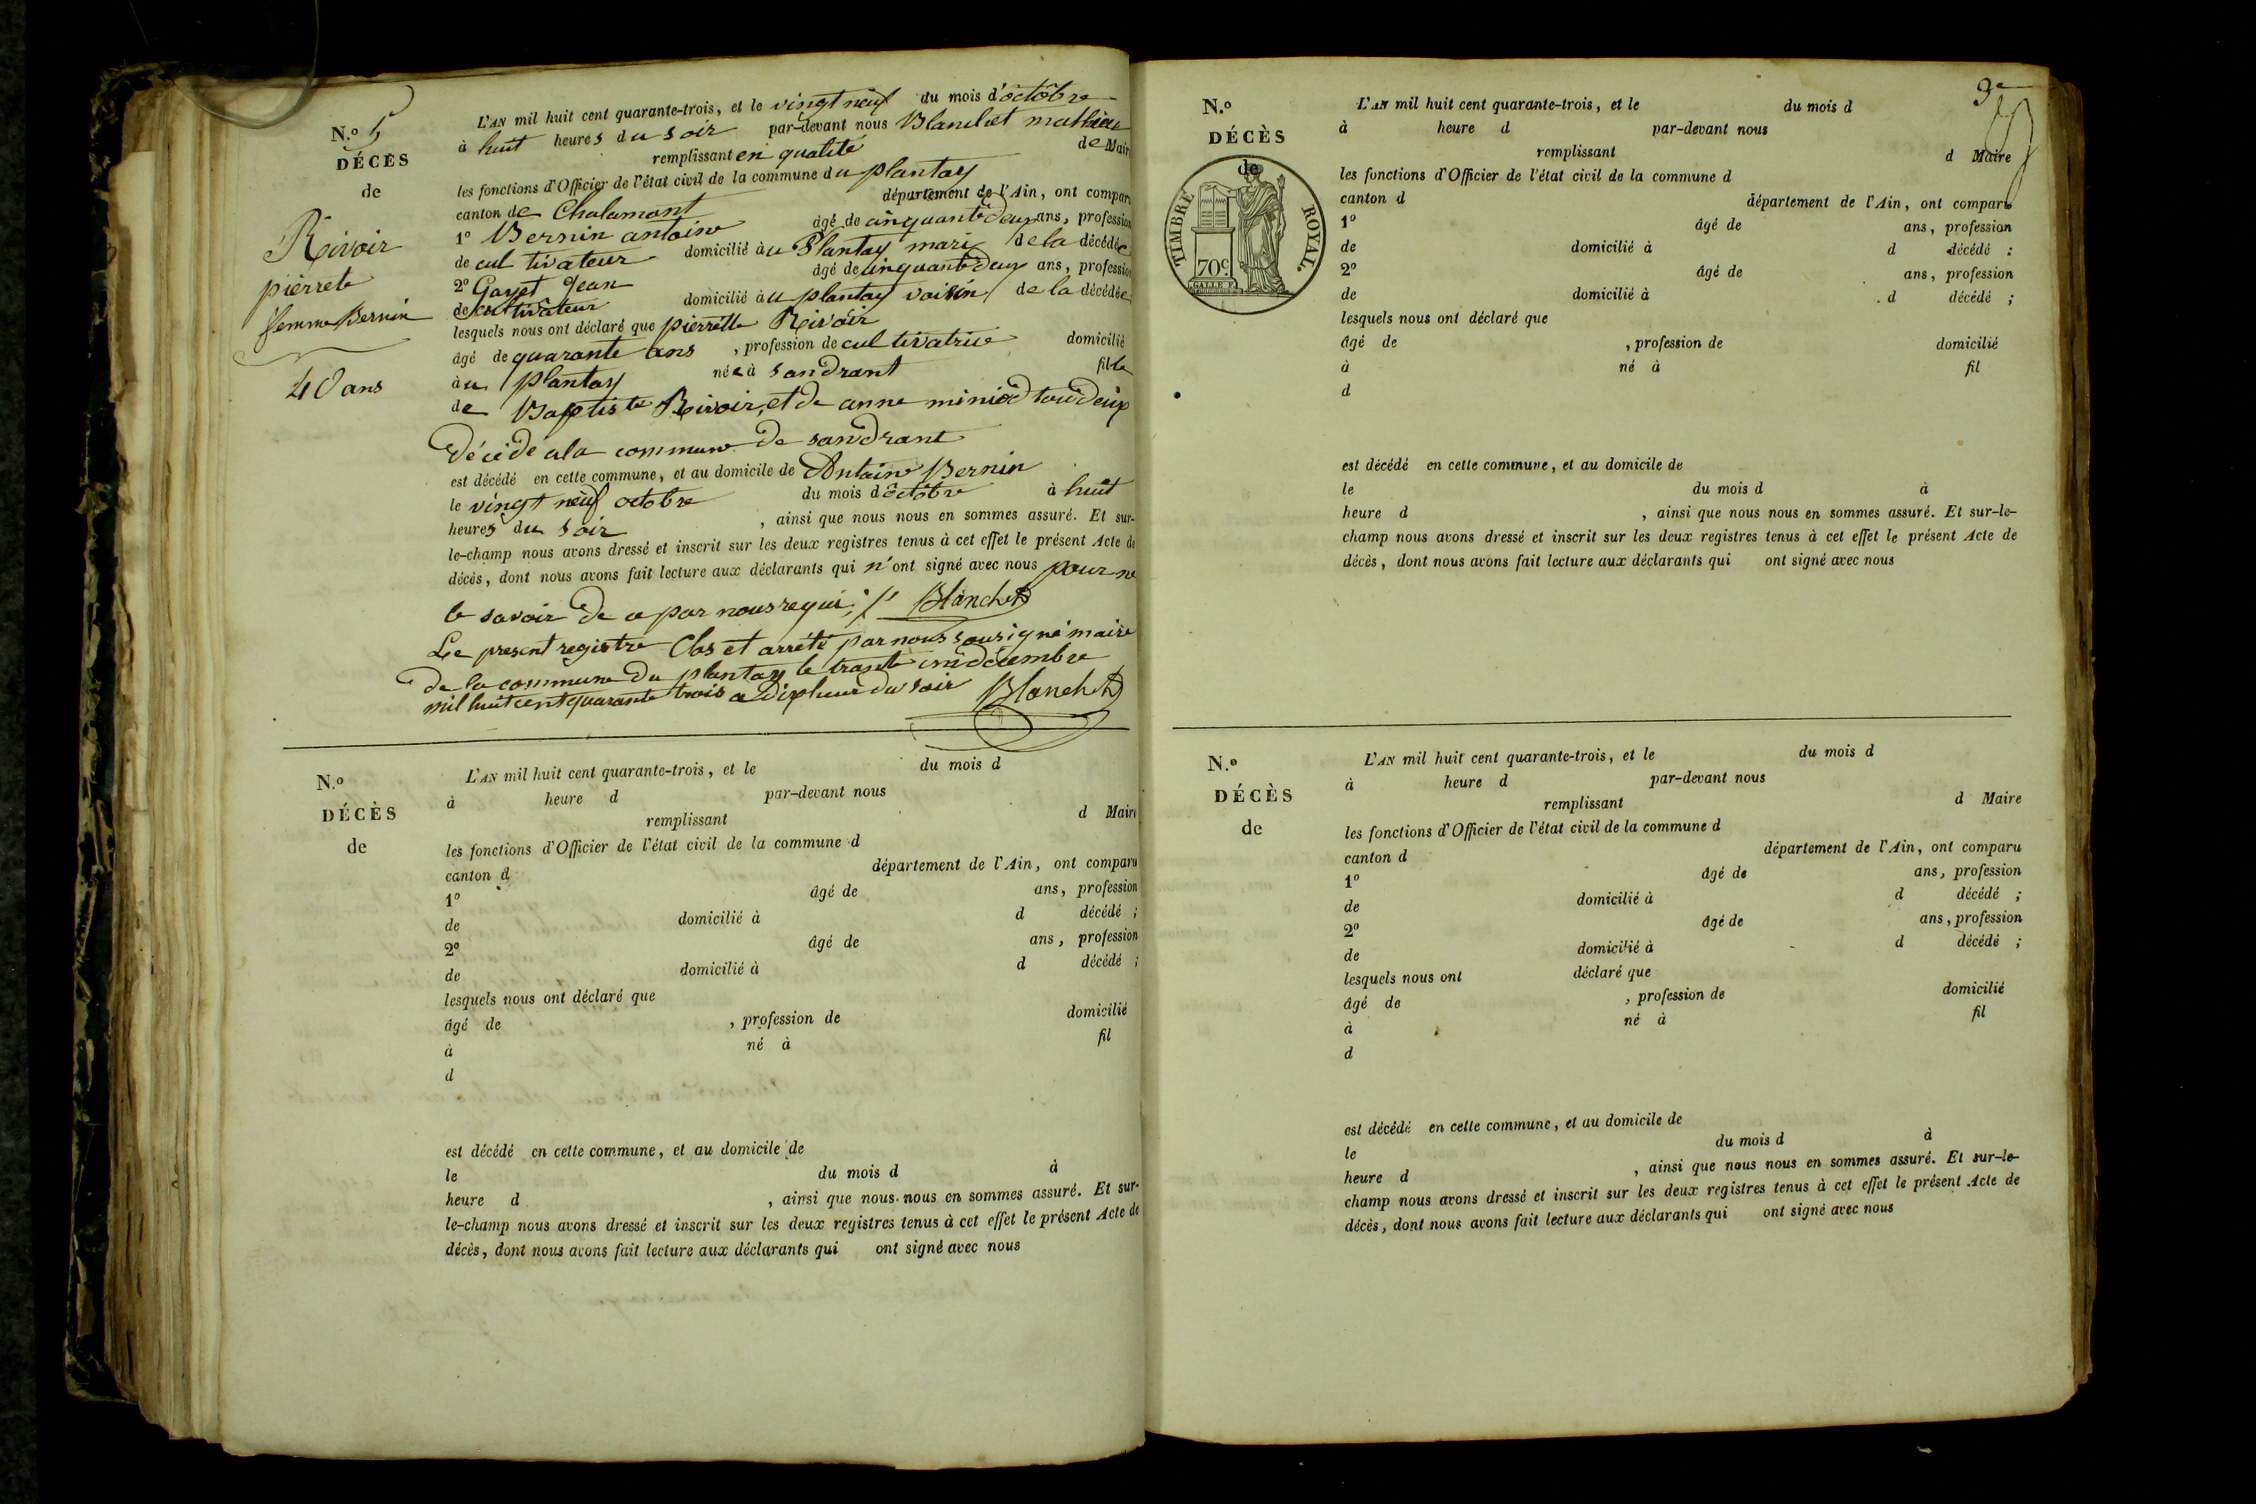 N.º 5
DÉCÈS
de
Rivoir
pierrete
femme Bernin
40 ans
L'AN mil huit cent quarante-trois, et le vingt neuf du mois d'octobre
à huit heures du soir par-devant nous Blanchet mathieu
remplissant en qualité de Maire
les fonctions d'Officier de l'état civil de la commune du plantay
canton de Chalamont département de l'Ain, ont comparu
1º Bernin antoine âgé de cinquante deux ans, profession
de cultivateur domicilié àu Plantay mari de la décédée
2º Gayet Jean âgé de cinquante deux ans, profession
de cultivateur domicilié àu plantay voisin de la décédée
lesquels nous ont déclaré que pierrette Rivoir
âgé de quarante ans, profession de cultivatrice domicilié
àu plantay née à sandrant fille
de Baptiste Rivoir, et de anne miniod tou deux
décédé ala commune de sandrant
est décédé en cette commune, et au domicile de Antoine Bernin
le vingt neuf octobre du mois d'octobre à huit
heures du soir, ainsi que nous nous en sommes assuré. Et sur-
le-champ nous avons dressé et inscrit sur les deux registres tenus à cet effet le présent Acte de
décès, dont nous avons fait lecture aux déclarants qui n'ont signé avec nous pour ne
le savoir de ce par nous requi Blanchet
Le present registre Clos et arrété par nous sousigné maire
de la commune du plantay le trante un décembre
mil huit cent quarante trois a dix heure du soir Blanchet
N.º
DÉCÈS
de
L'AN mil huit cent quarante-trois, et le du mois d
à heure d par-devant nous
remplissant d Maire
les fonctions d'Officier de l'état civil de la commune d
canton d département de l'Ain, ont comparu
1º âgé de ans, profession
de domicilié à d décédé ;
2º âgé de ans, profession
de domicilié à d décédé ;
lesquels nous ont déclaré que
âgé de , profession de domicilié
à né à fil
d
est décédé en cette commune, et au domicile de
le du mois d à
heure d , ainsi que nous nous en sommes assuré. Et sur-
le-champ nous avons dressé et inscrit sur les deux registres tenus à cet effet le présent Acte de
décès, dont nous avons fait lecture aux déclarants qui ont signé avec nous
N.º
DÉCÈS
de
TIMBRE ROYAL.
70 c.
L'AN mil huit cent quarante-trois, et le du mois d
à heure d par-devant nous
remplissant d Maire
les fonctions d'Officier de l'état civil de la commune d
canton d département de l'Ain, ont comparu
1º âgé de ans, profession
de domicilié à d décédé :
2º âgé de ans, profession
de domicilié à d décédé ;
lesquels nous ont déclaré que
âgé de , profession de domicilié
à né à fil
d
est décédé en cette commune, et au domicile de
le du mois d à
heure d , ainsi que nous nous en sommes assuré. Et sur-le-
champ nous avons dressé et inscrit sur les deux registres tenus à cet effet le présent Acte de
décès, dont nous avons fait lecture aux déclarants qui ont signé avec nous
N.º
DÉCÈS
de
L'AN mil huit cent quarante-trois, et le du mois d
à heure d par-devant nous
remplissant d Maire
les fonctions d'Officier de l'état civil de la commune d
canton d département de l'Ain, ont comparu
1º âgé de ans, profession
de domicilié à d décédé ;
2º âgé de ans, profession
de domicilié à d décédé ;
lesquels nous ont déclaré que
âgé de , profession de domicilié
à né à fil
d
est décédé en cette commune, et au domicile de
le du mois d à
heure d , ainsi que nous nous en sommes assuré. Et sur-le-
champ nous avons dressé et inscrit sur les deux registres tenus à cet effet le présent Acte de
décès, dont nous avons fait lecture aux déclarants qui ont signé avec nous